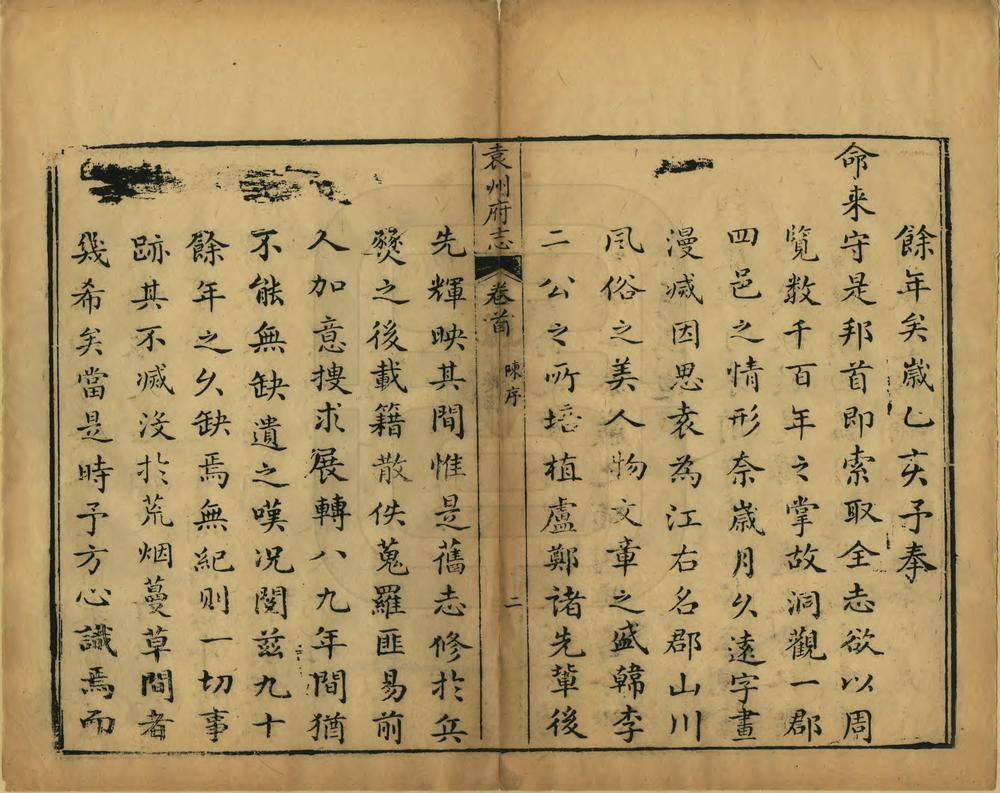 餘年矣歲乙亥予奉
命来守是邦首即索取全志欲以周
覽数千百年之掌故洞觀一郡
四邑之情形奈歲月久逺字畫
漫滅因思袁為江右名郡山川
風俗之美人物文章之盛韓李
二公之所培植盧鄭諸先軰後
袁州府志
卷首
陳序
二
先輝映其間惟是舊志修於兵
燹之後載籍散佚蒐羅匪易前
人加意搜求展轉八九年間猶
不能無缺遺之嘆况閱兹九十
餘年之久缺焉無紀则一切事
跡其不滅没於荒烟蔓草間者
幾希矣當是時予方心識焉而